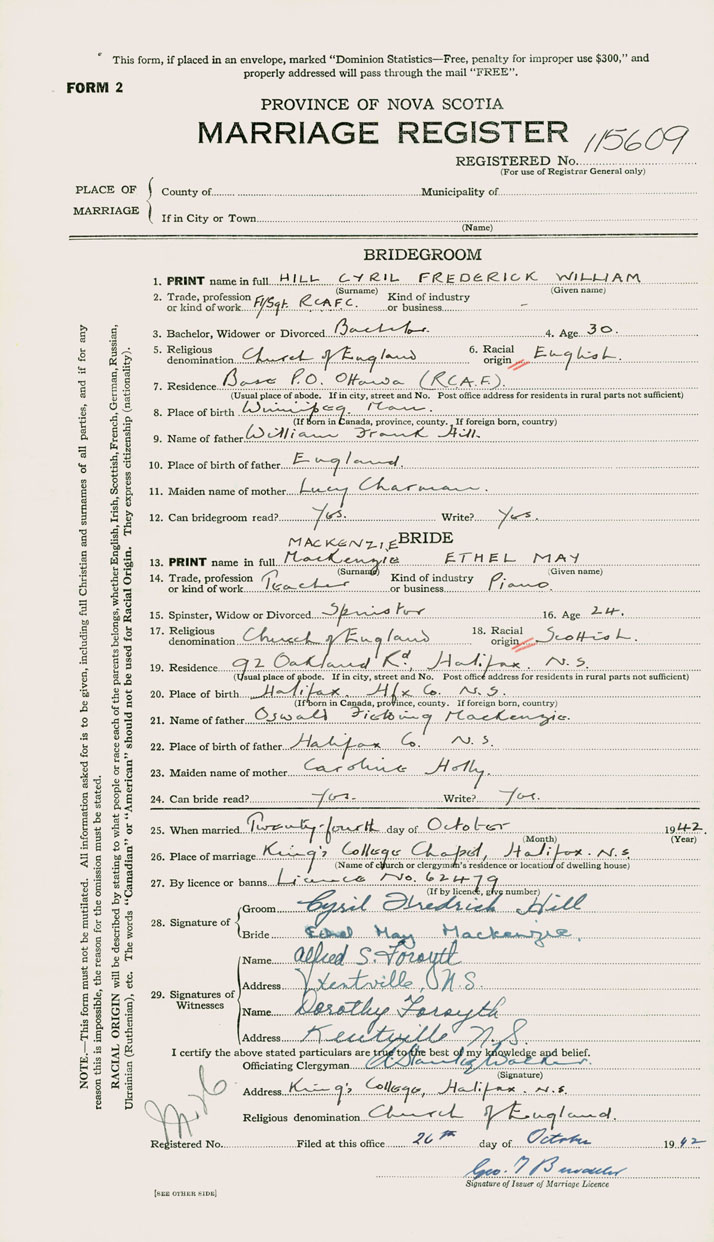 This form, if placed in an envelope, marked "Dominion Statistics—Free, penalty for improper use $300," and
properly addressed will pass through the mail "FREE".
FORM 2
PROVINCE OF NOVA SCOTIA
MARRIAGE REGISTER
115609
REGISTERED No.
(For use of Registrar General only)
PLACE OF MARRIAGE
County of Municipality of
If in City or Town
(Name)
BRIDEGROOM
1. PRINT name in full HILL CYRIL FREDERICK WILLIAM
(Surname) (Given name)
2. Trade, profession or kind of work F/Sgt. R.C.A.F. Kind of industry or business –
3. Bachelor, Widower or Divorced Bachelor. 4. Age 30.
5. Religious denomination Church of England 6. Racial origin English.
7. Residence Base P.O. Ottawa (R.C.A.F.)
(Usual place of abode. If in city, street and No. Post office address for residents in rural parts not sufficient)
8. Place of birth Winnipeg. Man.
(If born in Canada, province, county. If foreign born, country)
9. Name of father William Frank Hill.
10. Place of birth of father England.
11. Maiden name of mother Lucy Charman.
12. Can bridegroom read? Yes. Write? Yes.
BRIDE
MACKENZIE
13. PRINT name in full Mackenzie ETHEL MAY
(Surname) (Given name)
14. Trade, profession or kind of work Teacher Kind of industry or business Piano.
15. Spinster, Widow or Divorced Spinster 16. Age 24.
17. Religious denomination Church of England 18. Racial origin Scottish.
19. Residence 92 Oakland Rd, Halifax. N.S.
(Usual place of abode. If in city, street and No. Post office address for residents in rural parts not sufficient)
20. Place of birth Halifax. Hfx Co. N.S.
(If born in Canada, province, county. If foreign born, country)
21. Name of father Oswald Mackenzie.
22. Place of birth of father Halifax Co. N.S.
23. Maiden name of mother Caroline Holly.
24. Can bride read? Yes. Write? Yes.
25. When married Twenty-fourth day of October 1942.
(Month) (Year)
26. Place of marriage King's College Chapel, Halifax. N.S.
(Name of church or clergyman's residence or location of dwelling house)
27. By licence or banns Licence No. 62479
(If by licence, give number)
28. Signature of
Groom Cyril Fredrick Hill
Bride Ethel May Mackenzie.
29. Signatures of Witnesses
Name Alfred S. Forsyth
Address Kentville, N.S.
Name Dorothy Forsyth
Address Kentville N.S.
I certify the above stated particulars are true to the best of my knowledge and belief.
Officiating Clergyman A. Stanley Walker.
(Signature)
Address King's College, Halifax N.S.
Religious denomination Church of England.
Registered No. Filed at this office 26th day of October 1942
Geo.
Signature of Issuer of Marriage Licence
[SEE OTHER SIDE]
NOTE.—This form must not be mutilated. All information asked for is to be given, including full Christian and surnames of all parties, and if for any
reason this is impossible, the reason for the omission must be stated.
RACIAL ORIGIN will be described by stating to what people or race each of the parents belongs, whether English, Irish, Scottish, French, German, Russian,
Ukrainian (Ruthenian), etc. The words "Canadian" or "American" should not be used for Racial Origin. They express citizenship (nationality).